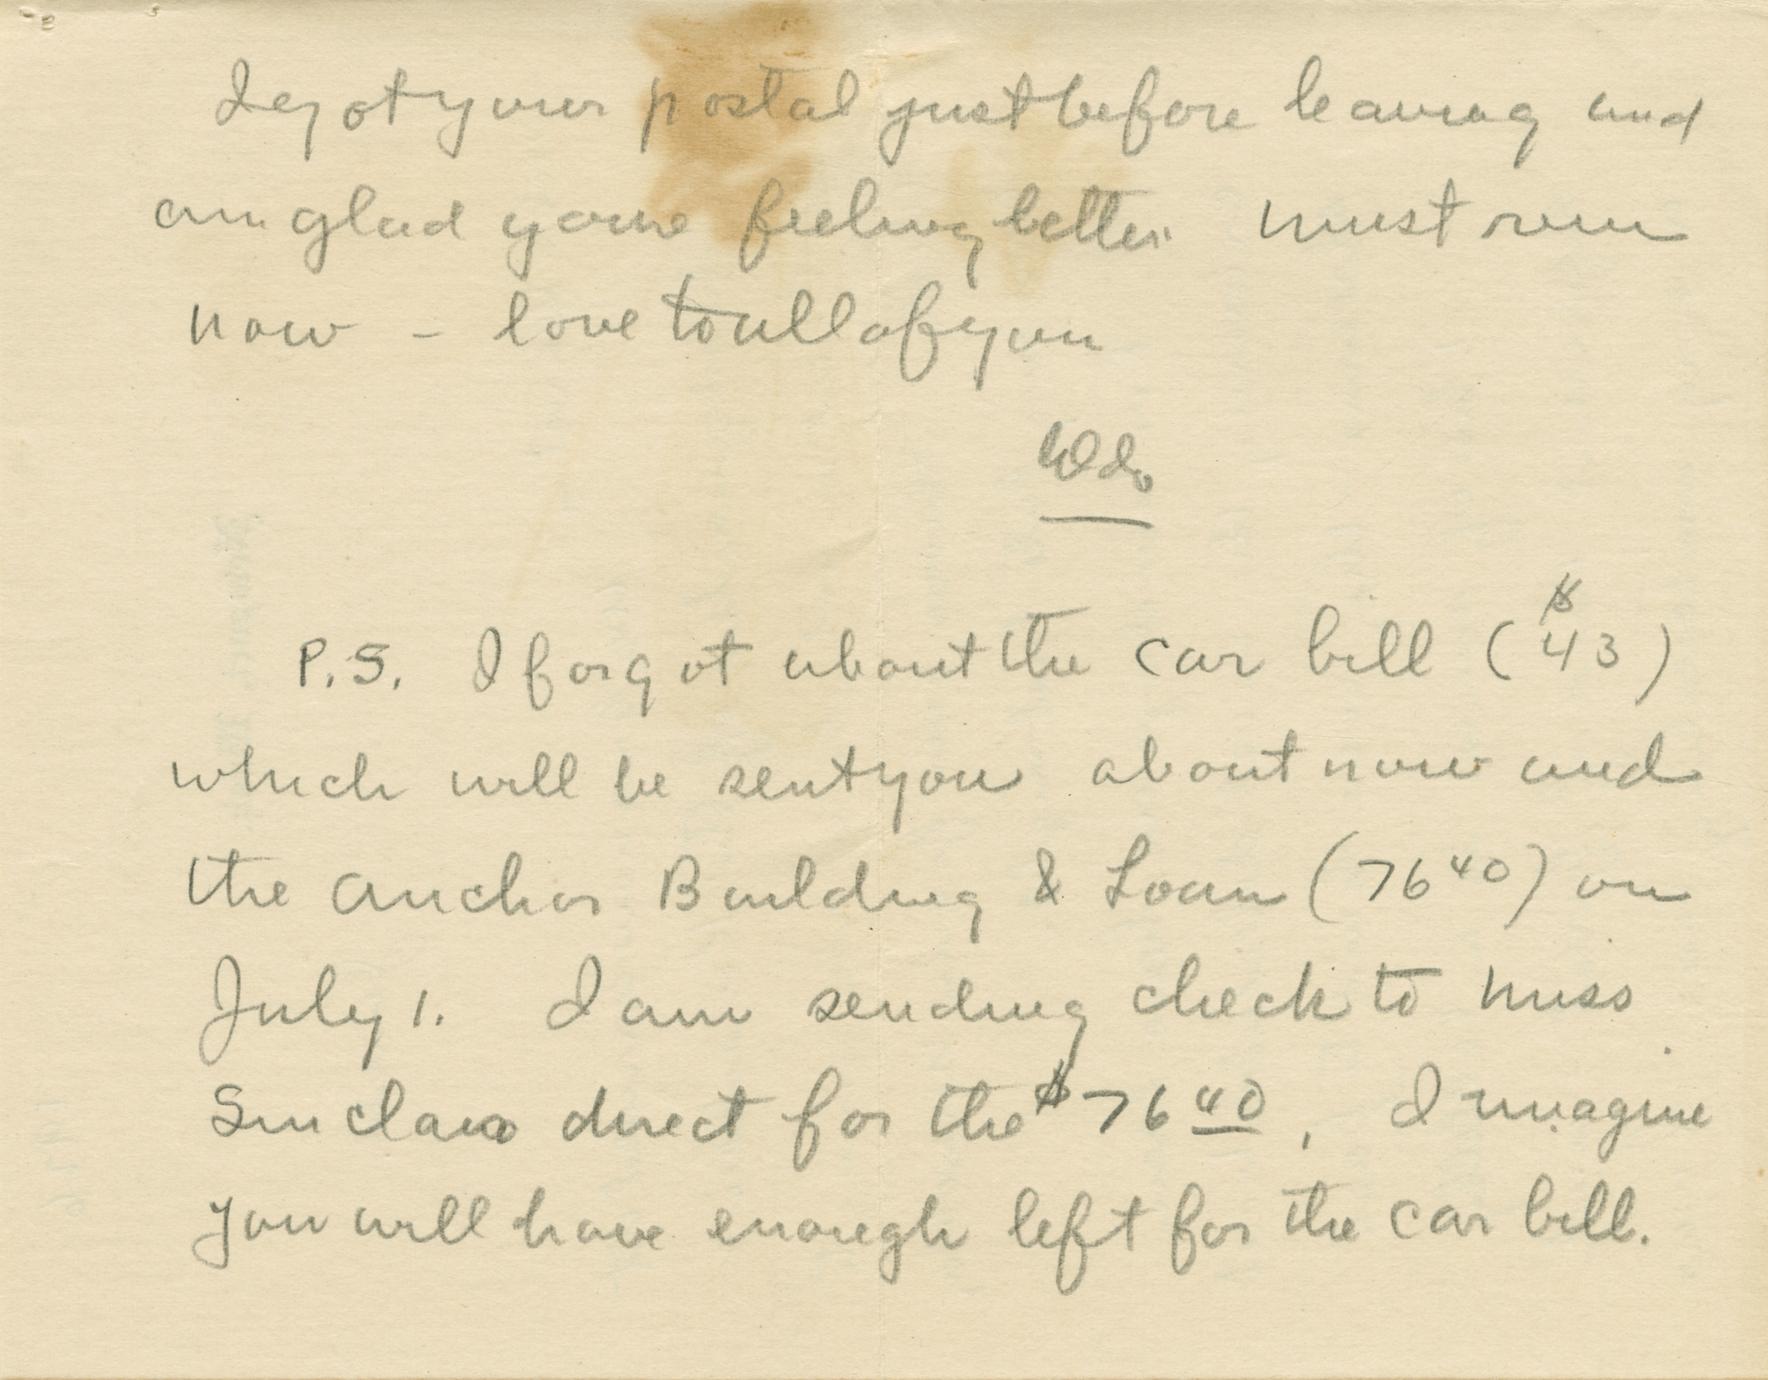 I got your postal just before leaving and
am glad youre feeling better must run
now - love to all of you
P.S. I forgot about the car bill ($43)
which will be sent you about now and
the Anchor Building & Loan (76 40) on
July 1. I am sending check to Miss
Sinclair direct for the $76 40, I imagine
you will have enough left for the car bill.